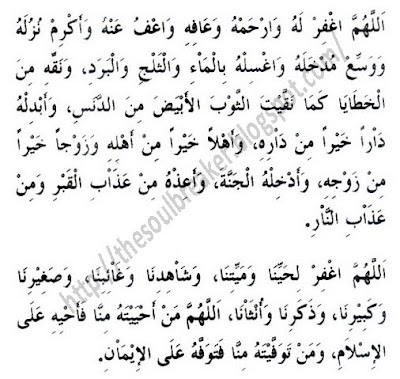 اَللَّهُمَّ اغْفِرْ لَهُ وَارْحَمْهُ وَعَافِهِ وَاعْفُ عَنْهُ وَأَكْرِمْ نُزُلَهُ
وَوَسِّعْ مُدْخَلَهُ وَاغْسِلْهُ بِالْمَاْءِ وَالثَّلْجِ وَالْبَرَدِ، وَنَقِّهِ مِنَ
الْخَطَايَا كَمَا نَقَّيْتَ الثَّوْبَ الْأَبْيَضَ مِنَ الدَّنَسِ، وَأَبْدِلْهُ
دَاْراً خَيْراً مِنْ دَاْرِهِ، وَأَهْلاً خَيْراً مِنْ أَهْلِهِ وَزَوْجاً خَيْراً
مِنْ زَوْجِهِ، وَأَدْخِلْهُ الْجَنَّةَ، وَأَعِذْهُ مِنْ عَذَاْبِ الْقَبْرِ وَمِنْ
عَذَاْبِ النَّاْرِ.
اَللَّهُمَّ اغْفِرْ لِحَيِّنَا وَمَيِّتِنَا، وَشَاْهِدِنَا وَغَاْئِبِنَا، وَصَغِيْرِنَا
وَكَبِيْرِنَا، وَذَكَرِنَا وَأُنْثَاْنَا، اَللَّهُمَّ مَنْ أَحْيَيْتَهُ مِنَّا فَأَحْيِهِ عَلَى
الْإِسْلَاْمِ، وَمَنْ تَوَفَّيْتَهُ مِنَّا فَتَوَفَّهُ عَلَى الْإِيْمَاْنِ.
http://thesoulbreaker.blogspot.com/